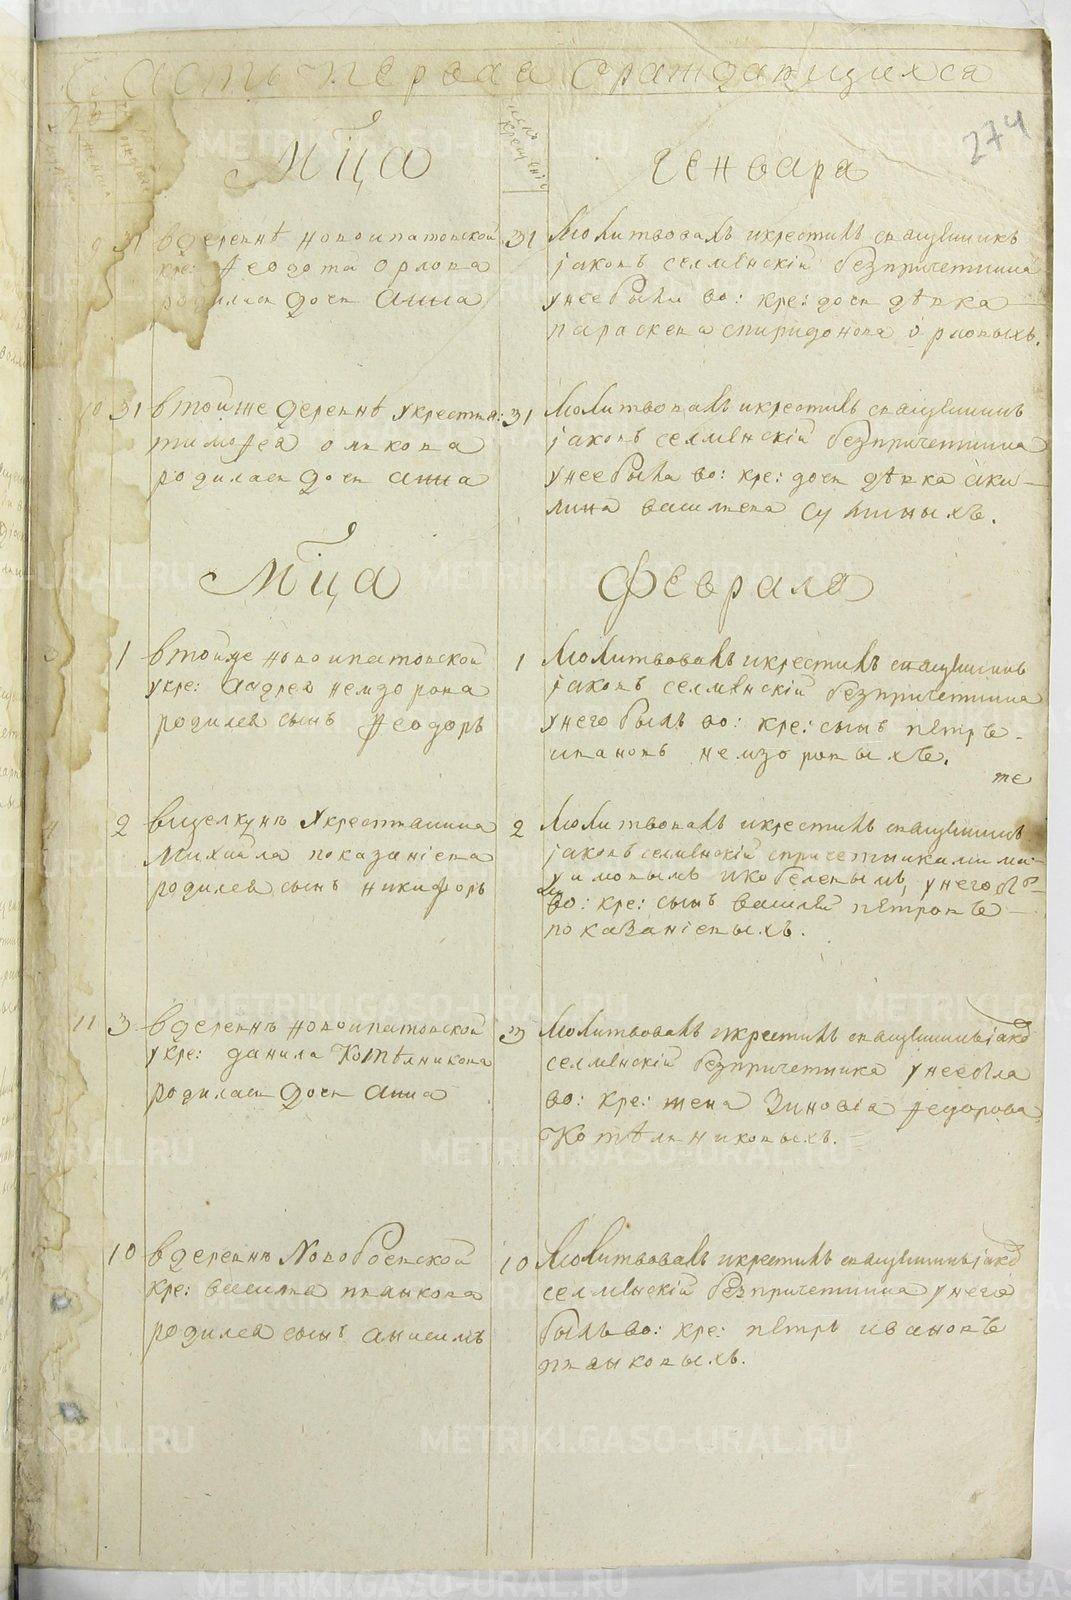 Часть перьвая ораждающихся
274
Мца
Генваря
31 вдеревнѣ новоипатовской
кре: Феодота орлова
родилась дочь Анна
31 Молитвовалъ икрестилъ священникъ
Іаковъ селменскій безпричетника
унее были во: кре: дочь дѣвка
параскева спиридонова орловыхъ.
10 31 втойже деревнѣ укрестья:
тимофея оликова
родилась дочь анна
31 Молитвовалъ икрестилъ священникъ
Іаковъ селменскій безпричетника
унее была во: кре: дочь дѣвка аки-
лина васильева
Мца
Февраля
1 втойже новоипатовской
укре: Андрея немзорова
родился сынъ Феодоръ
1 Молитвовалъ икрестилъ священникъ
Іаковъ селменскій безпричетника
унего былъ во: кре: сынъ петръ
ивановъ немзоровыхъ.
те
2 Укрестьянина
Михайла показаніева
родился сынъ никифоръ
2 Молитвовалъ икрестилъ священникъ
Іаковъ селменскій спричетниками
икобелевымъ, унего бы-
во: кре: сынъ василей петровъ
показаніевыхъ.
11 3 вдеревнѣ новоипатовской
укре: данила Котѣлникова
родилась дочь анна
3 Молитвовалъ икрестилъ священникъ Іаков
селменскій безпричетника унее была
во: кре: жена Зиновіа Федорова
Котѣлниковыхъ.
10 вдеревнѣ Новобоевской
кре: василья пьянкова
родился сынъ анисимъ
10 Молитвовалъ икрестилъ священникъ Іаков
селменскій безпричетника унего
былъ во: кре: петръ ивановъ
пьянковыхъ.
METRIKI.GASO-URAL.RU